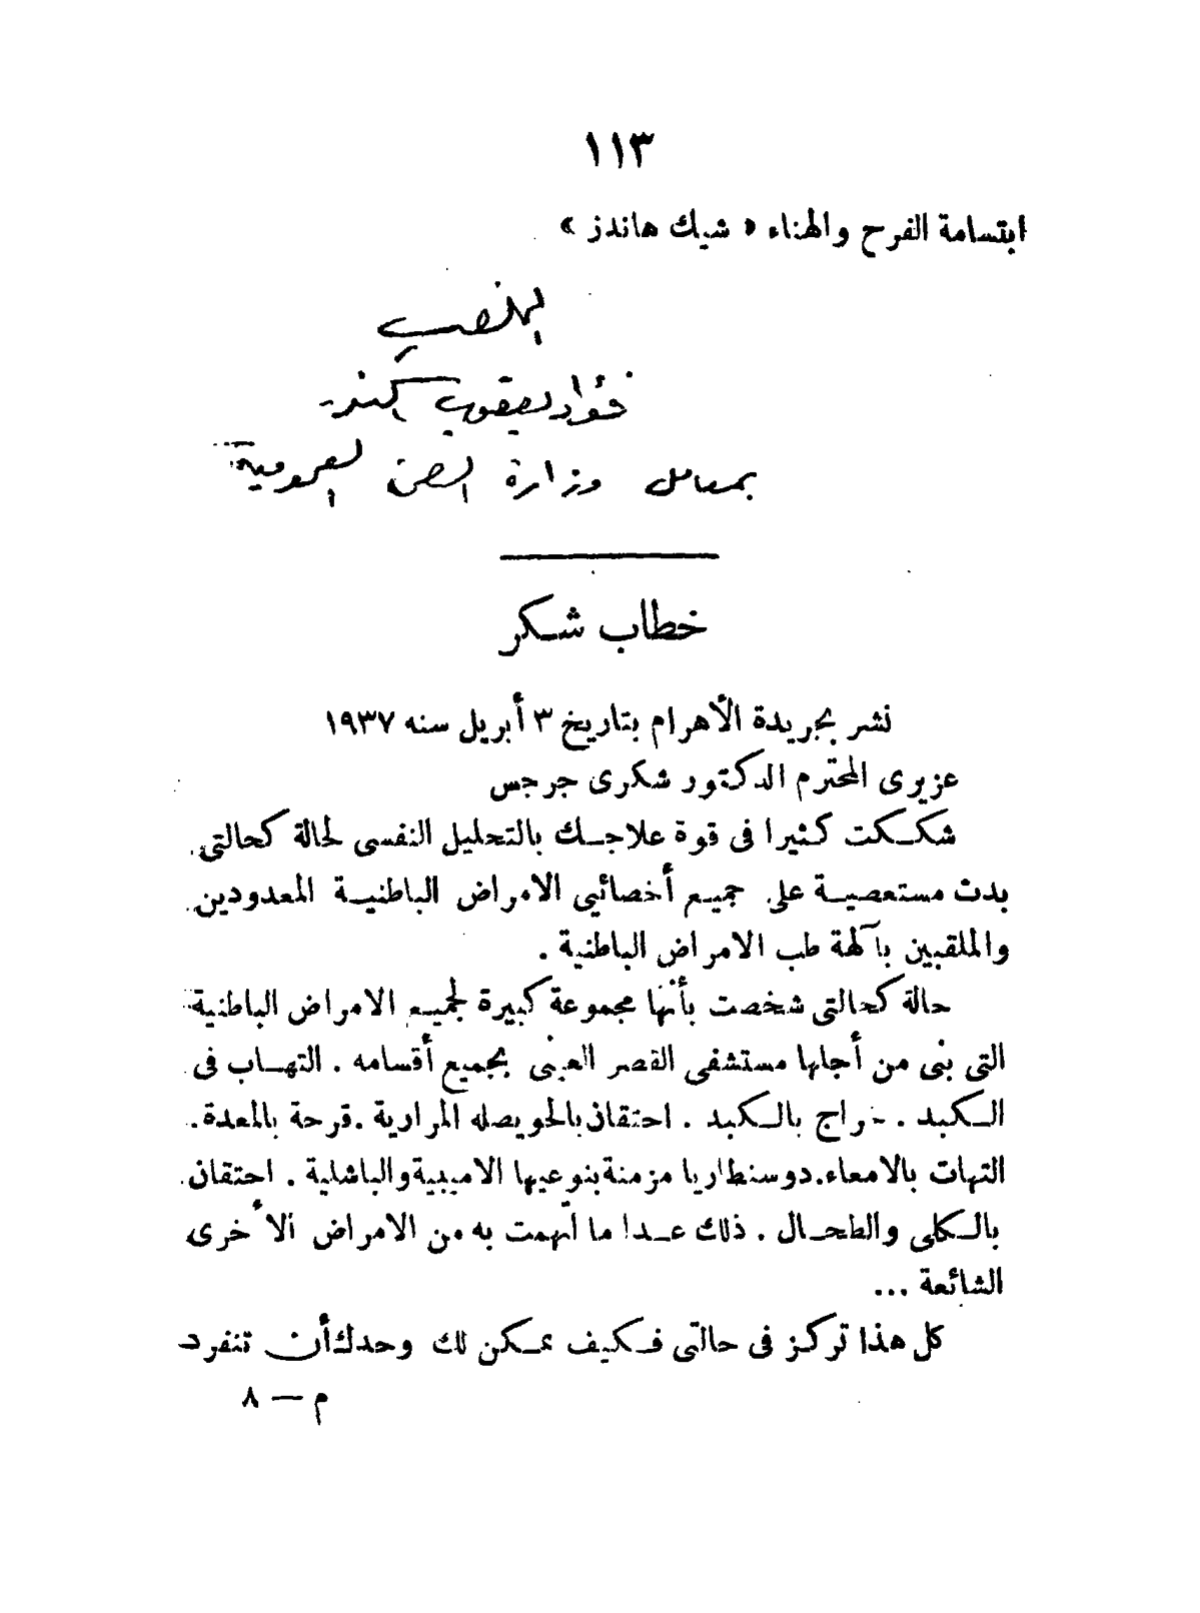 ١١٣
ابتسامة الفرح والهناء « شيك هاندز »
المخلص
فؤاد يعقوب
بمعامل وزارة الصحة العمومية
خطاب شكر
نشر بجريدة الأهرام بتاريخ ٣ أبريل سنه ١٩٣٧
عزيزى المحترم الدكتور شكرى جرجس
شككت كثيرا فى قوة علاجك بالتحليل النفسى لحالة كحالتى
بدت مستعصية على جميع أخصائيي الامراض الباطنية المعدودين
والملقبين بآلهة طب الامراض الباطنية .
حالة كحالتى شخصت بأنها مجموعة كبيرة لجميع الامراض الباطنية
التى بنى من أجلها مستشفى القصر العينى بجميع أقسامه . التهاب فى
الكبد . خراج بالكبد . احتقان بالحويصله المرارية . قرحة بالمعدة .
التهات بالامعاء . دوسنطاريا مزمنة بنوعيها الاميبية والباشلية . احتقان
بالكلى والطحال . ذلك عدا ما اتهمت به من الامراض الأخرى
الشائعة ...
كل هذا تركز فى حالتى فكيف يمكن لك وحدك أن تنفرد
م — ٨